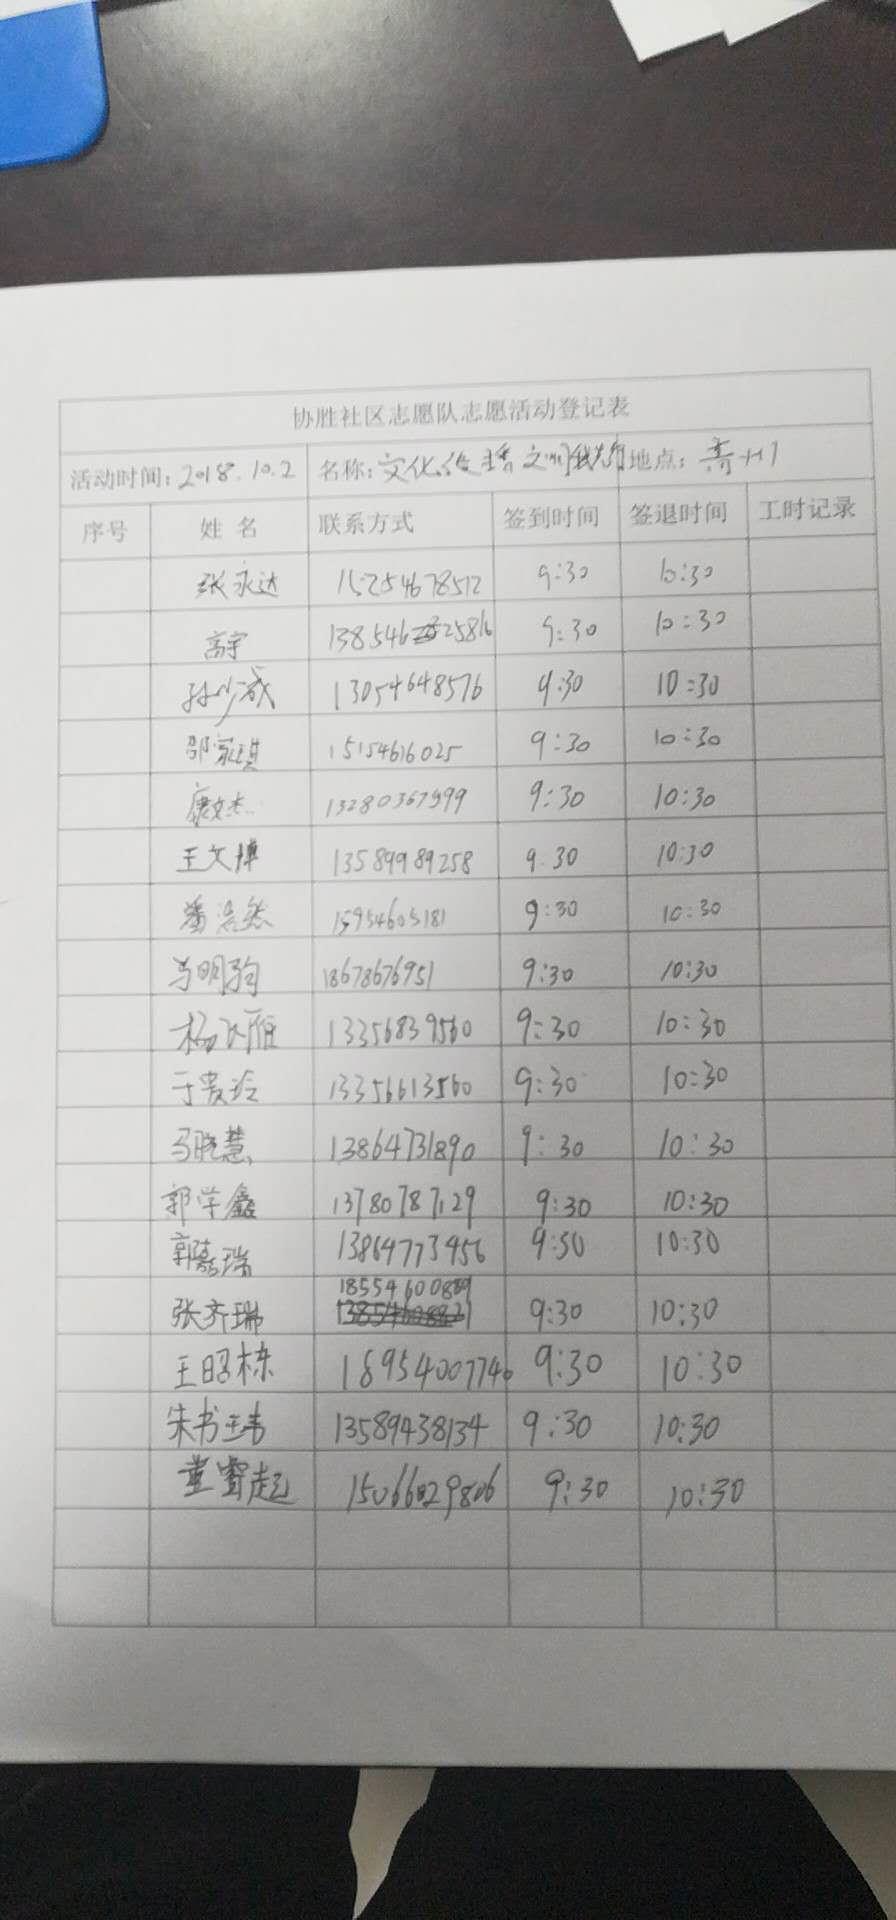 协胜社区志愿队志愿活动登记表
活动时间：2018.10.2 名称：文化传播之 地点：
序号 姓名 联系方式 签到时间 签退时间 工时记录
张永达 15254678512 9:30 10:30
高宇 9:30 10:30
孙少威 13054648576 9:30 10:30
邵家琪 15154616025 9:30 10:30
康文杰 13280367999 9:30 10:30
王文博 13589989258 9:30 10:30
潘浩然 15954605181 9:30 10:30
马明驹 18678676951 9:30 10:30
杨飞雁 13356839560 9:30 10:30
于爱玲 13356613560 9:30 10:30
马晓慧 13864731890 9:30 10:30
郭学鑫 13780787129 9:30 10:30
郭嘉瑞 13864773456 9:30 10:30
张齐瑞 9:30 10:30
王昭栋 18954007740 9:30 10:30
朱书玮 13589438134 9:30 10:30
董 起 15066029806 9:30 10:30